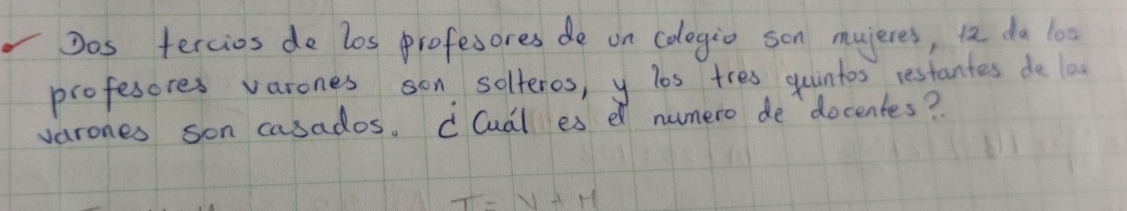 Dos tercios de los profesores de un colegio son mujeres, 12 de los
profesores varones son solteros, y los tres quintos restantes de los
varones son casados. ¿Cuál es el numero de docentes?
T = V + M